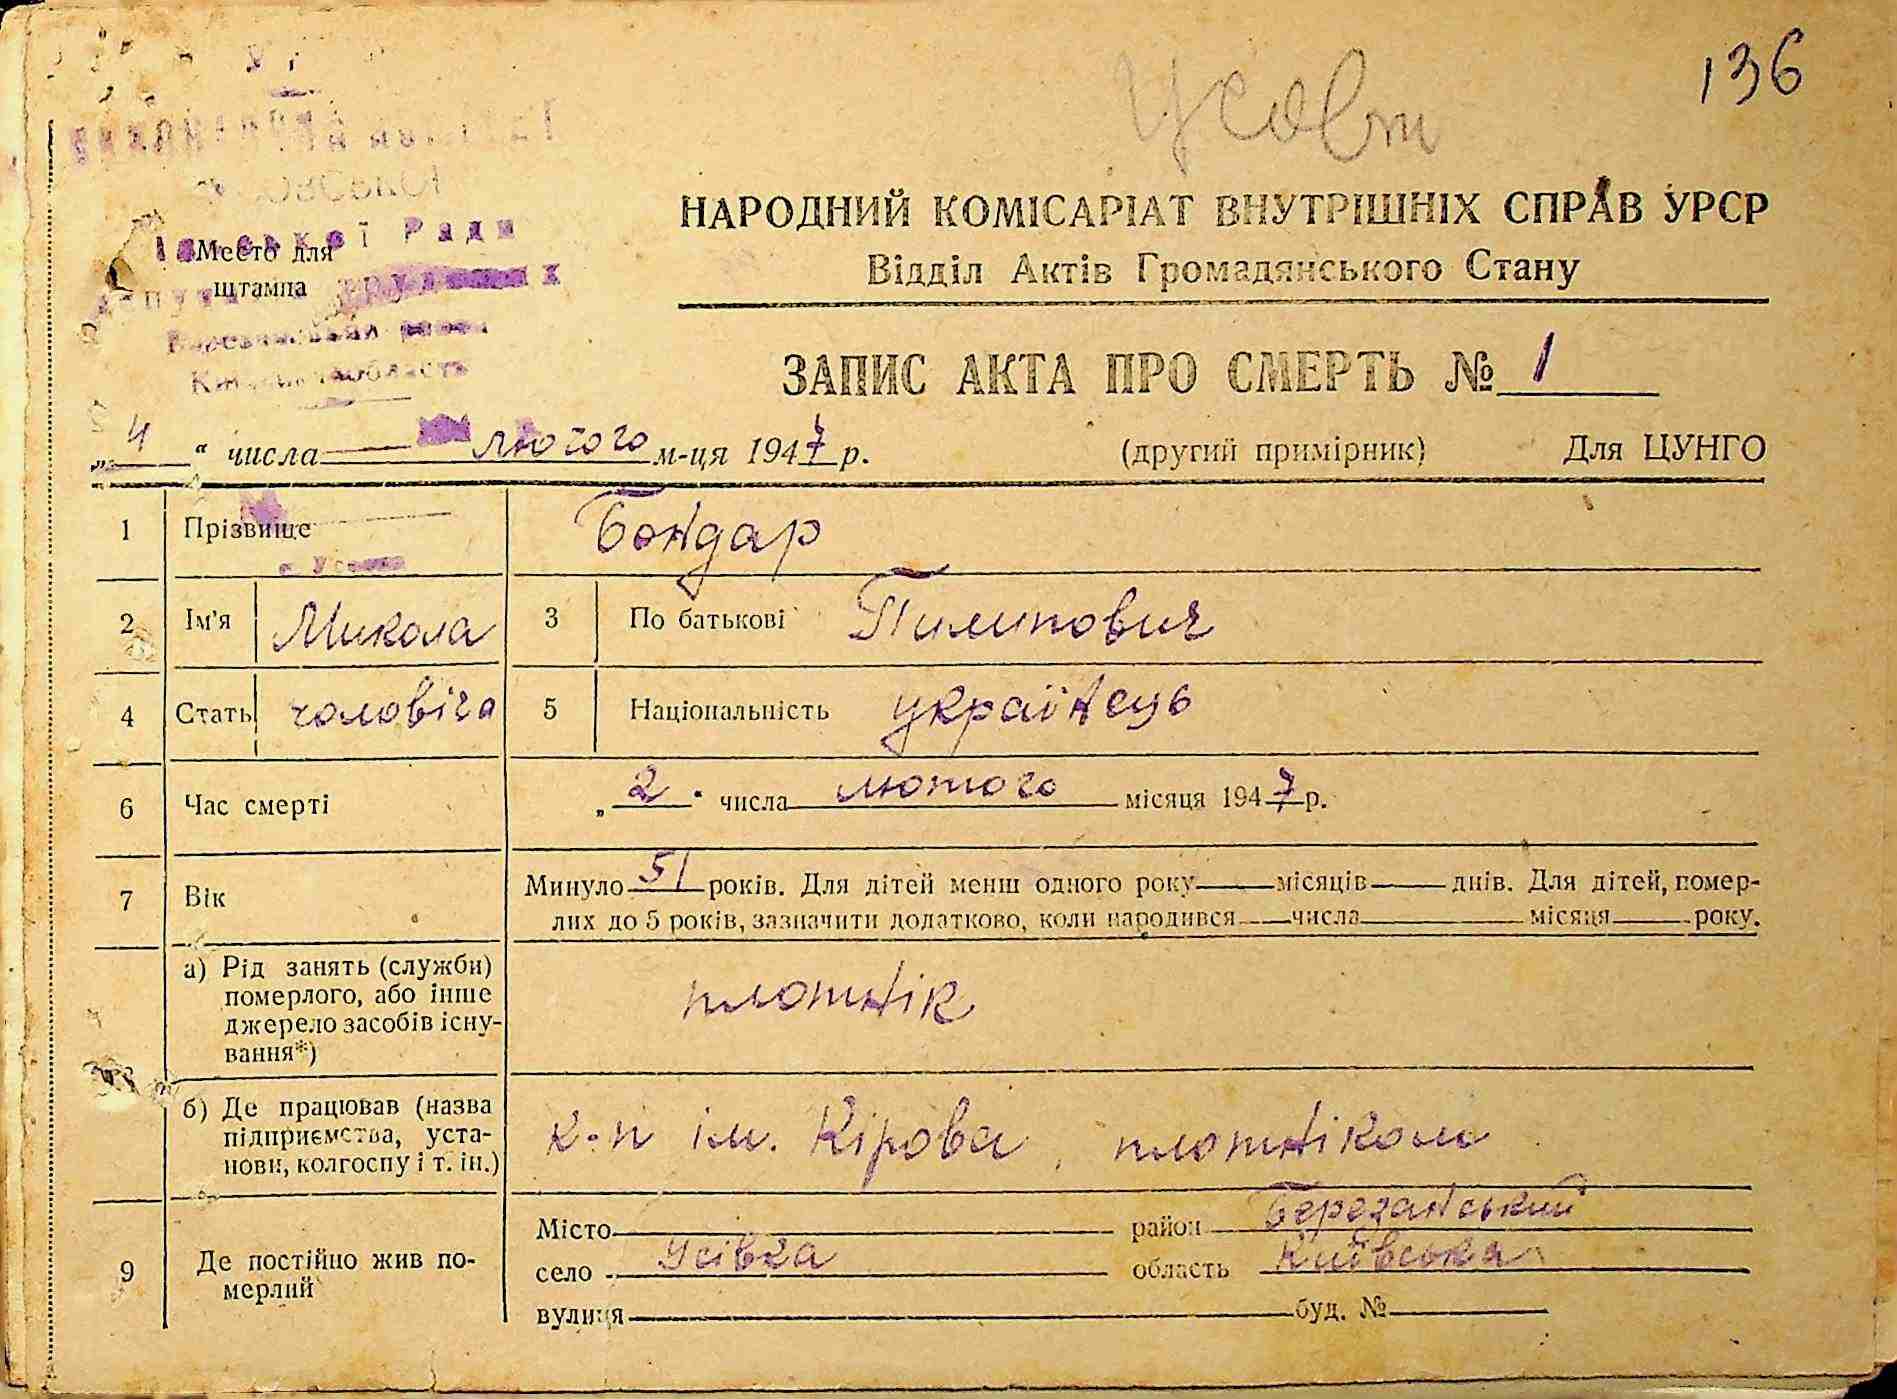 136
НАРОДНИЙ КОМІСАРІАТ ВНУТРІШНІХ СПРАВ УРСР
Відділ Актів Громадянського Стану
Ради
Место для
штампа
область
ЗАПИС АКТА ПРО СМЕРТЬ № 1
„4“ числа лютого м-ця 1947 р. (другий примірник) Для ЦУНГО
1 Прізвище Бондар
2 Ім'я Микола 3 По батькові Пилипович
4 Стать чоловіча 5 Національність українець
6 Час смерті „2“ числа лютого місяця 1947 р.
7 Вік Минуло 51 років. Для дітей менш одного року місяців днів. Для дітей, помер-
лих до 5 років, зазначити додатково, коли народився числа місяця року.
а) Рід занять (служби)
померлого, або інше
джерело засобів існу-
вання*)
плотнік
б) Де працював (назва
підприємства, уста-
нови, колгоспу і т. ін.)
к-п ім. Кірова, плотніком
9 Де постійно жив по-
мерлий
Місто район Березанський
село Усівка область Київська
вулиця буд. №